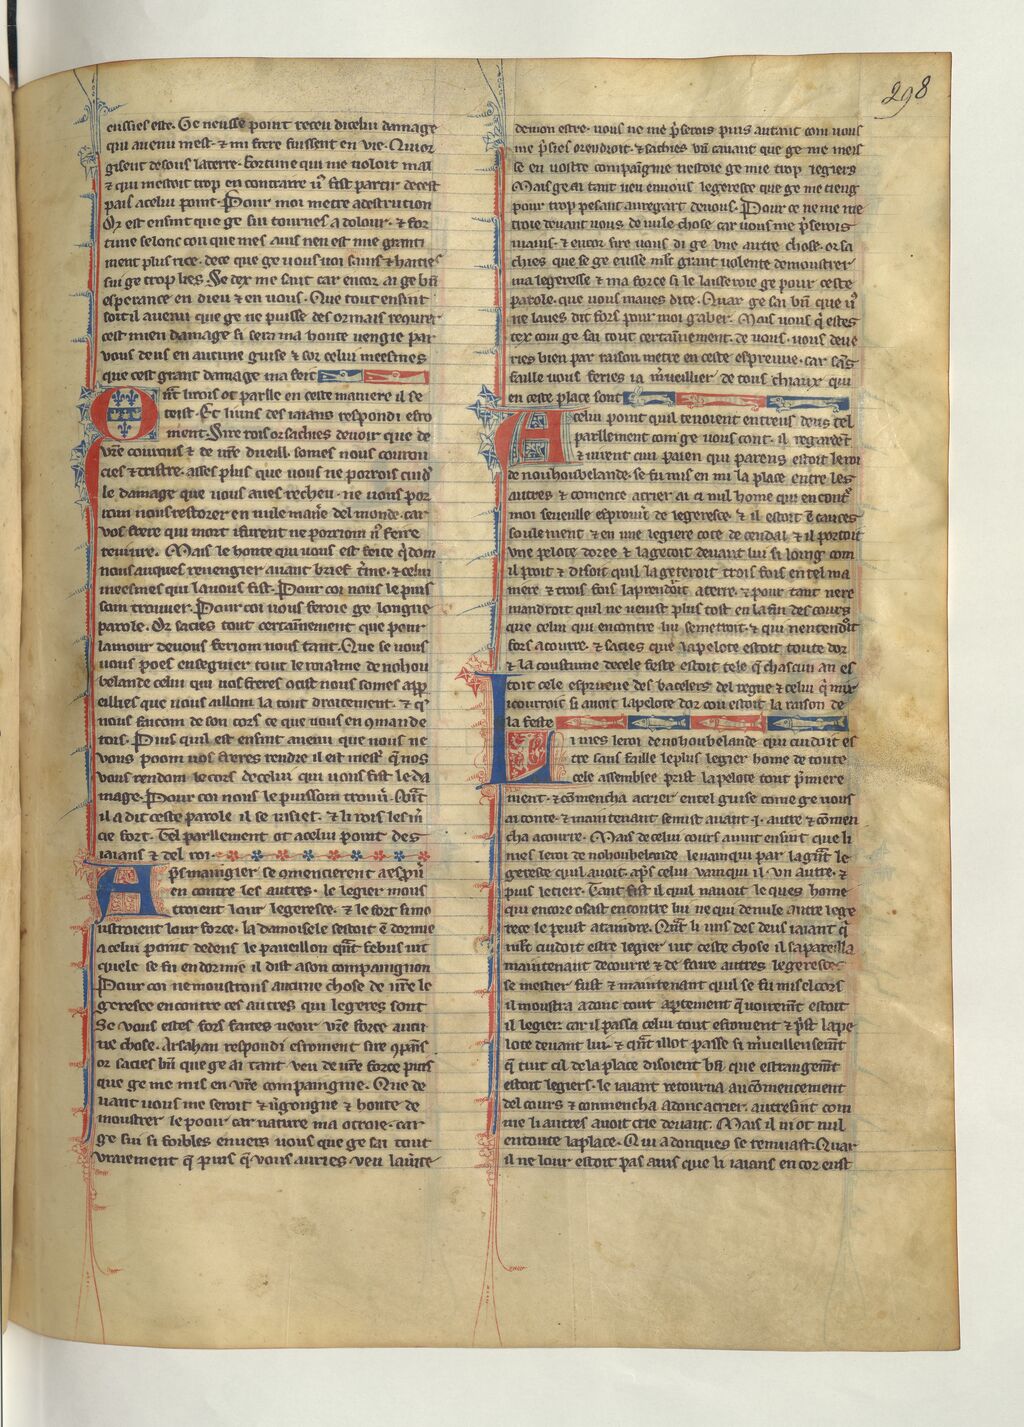 298
eussies este. Ge neusse point receu dicelui damage
qui avenu mest. & mi frere fuissent en vie. Qui or
gisent desous la terre. Fortune qui me voloit mal
& qui mestoit trop en contraire
pais a celui point. Pour moi metre a destrution
Or est ensint que ge sui tournes a dolour. & for
tune selonc cou que mes avis nen est mie granti
ment plus rice. de ce que ge vous voi sains & haities
sui ge trop lies. Se dex me saut car encor ai ge bn
esperance en dieu & en vous. Que tout ensint
soit il avenu que ge ne puisse des ormais requrer
cest mien damage si sera ma honte vengie par
vous deus en aucune guise & sor celui meesmes
que cest grant damage ma fait
Qnt li rois ot parlle en ceste maniere il se
teust. Et li uns des iaians respondi esro
ment. Sire rois or sachies de voir que de
vre courous & de vre dueill. somes nous courou
cies & tristre. asses plus que vous ne porrois cuidr
le damage que vous aves recheu. ne vous por
rom nous restorer en nule manre del monde. car
vos frere qui mort i furent ne porriom nos ferre
revivre. Mais le honte qui vous est feite q dom
nous auques revengier avant brief trme. & celui
meesmes qui la vous fist. Pour coi nous le puis
som trouver. Pour coi vous feroie ge longue
parole. Or sacies tout certainement que pour
lamour de vous feriom nous tant. Que se vous
nous poes enseignier tout le roialme de nohou
belande celui qui vos freres ocist nous somes app
eillies que nous aillom la tout droitement. & q
nous facom de son cors ce que vous en comande
rois. Puis quil est ensint avenu que nous ne
vous poom vos freres rendre il est mestr q nos
vous rendom le cors de celui qui vous fist le da
mage. Pour coi nous le puissom trouvr. Qnt
il a dit ceste parole il se risiet. & li rois les mr
cie fort. Tel parllement ot a celui point des
iaians & del roi.
Aprs mangier se comencierent a esprv
en contre les autres. le legier mous
troient lour legeresce. & le fort si mo
ustroient lour force. la damoisele sestoit en dormie
a celui point dedens le paveillon qnt febus vit
quele se fu endormie il dist a son compaingnon
Pour coi ne moustrons aucune chose de vre le
geresce encontre ces autres qui legeres sont
Se vous estes fors faites veoir vre force aucu
ne chose. Arsahan respondi esroment sire
or sacies bn que ge ai tant veu de vre force puis
que ge me mis en vre compaingnie. Que de
vant vous me seroit & vrgongne & honte de
moustrer le pooir car nature ma otroie. car
ge sui si foibles envers vous que ge sai tout
vraiement q puis q vous auries veu
demon estre. vous ne me prserois puis autant com vous
me prsies orendroit. & sachies bn cavant que ge me meis
se en vostre compaingnie nestoie ge mie trop legiers
Mais ge ai tant veu en vous legeresce que ge me tieng
pour trop pesant au regart de vous. Pour ce ne me me
troie devant vous de nule chose car vous me prserois
mains. & encor sire vous di ge une autre chose. or sa
chies que se ge eusse mlt grant volente de moustrer
ma legeresse & ma force si le laisseroie ge pour ceste
parole. que vous maves dite. Quar ge sai bn que vs
ne laves dit fors pour moi gaber. Mais vous q estes
tex com ge sai tout certainement. de vous. vous deve
ries bien par raison metre en ceste espreuve. car sans
faille vous feries ia mrveillier de tous chiaux qui
en ceste place sont
A celui point quil tenoient entreus deus tel
parllement com ge vous cont. il regardent
& virent cun paien qui parens estoit le roi
de nouhoubelande. se fu mis en mi la place entre les
autres & comence a crier ai ci nul home qui encontr
moi se veulle esprouvr de legeresce. & il estoit en cauces
soulement & en une legiere cote de cendal & il portoit
une pelote doree & la getoit devant lui si loing com
il pooit & disoit quil la geteroit trois fois en tel ma
niere & trois fois la prendoit a terre. & pour tant nere
mandroit quil ne venist plus tost en la fin des cours
que celui qui encontre lui se metroit. & qui nentendoit
fors a courre. & sacies que la pelote estoit toute dor
& la coustume de cele feste estoit tele q chascun an es
toit cele espreuve des bacelers del regne & celui q mix
i courroit si avoit la pelote dor cou estoit la raison de
la feste
Li nies le roi de nohoubelande qui cuidoit es
tre sans faille le plus legier home de toute
cele assemblee prist la pelote tout prmiere
ment. & comencha a crier en tel guise come ge vous
ai conte. & maintenant se mist avant .i. autre & comen
cha a courre. Mais de celui cours avint ensint que li
nies le roi de nohoubelande le vainqui par la grnt le
geresce quil avoit. aprs celui vainqui il .vn. autre. &
puis le tierc. Tant fist il quil navoit le ques home
qui encore osast encontre lui ne qui de nule autre lege
rece le peust ataindre. Qnt li uns des deus iaiant q
mlt cuidoit estre legier vit ceste chose il sapareilla
maintenant de courre & de faire autres legeresces
se mestier fust & maintenant quil se fu mis el cors
il moustra a donc tout aprtement q voirement estoit
il legier car il passa celui tout esroment & prst la pe
lote devant lui. & qnt il lot passe si mrveilleusemnt
q tuit cil de la place disoient bn que estrangemnt
estoit legiers. le iaiant retourna au comencement
del cours & conmencha a donc a crier. autresint com
me li autres avoit crie devant. Mais il ni ot nul
en toute la place. Qui a donques se remuast. Quar
il ne lour estoit pas avis que li iaians encor eust